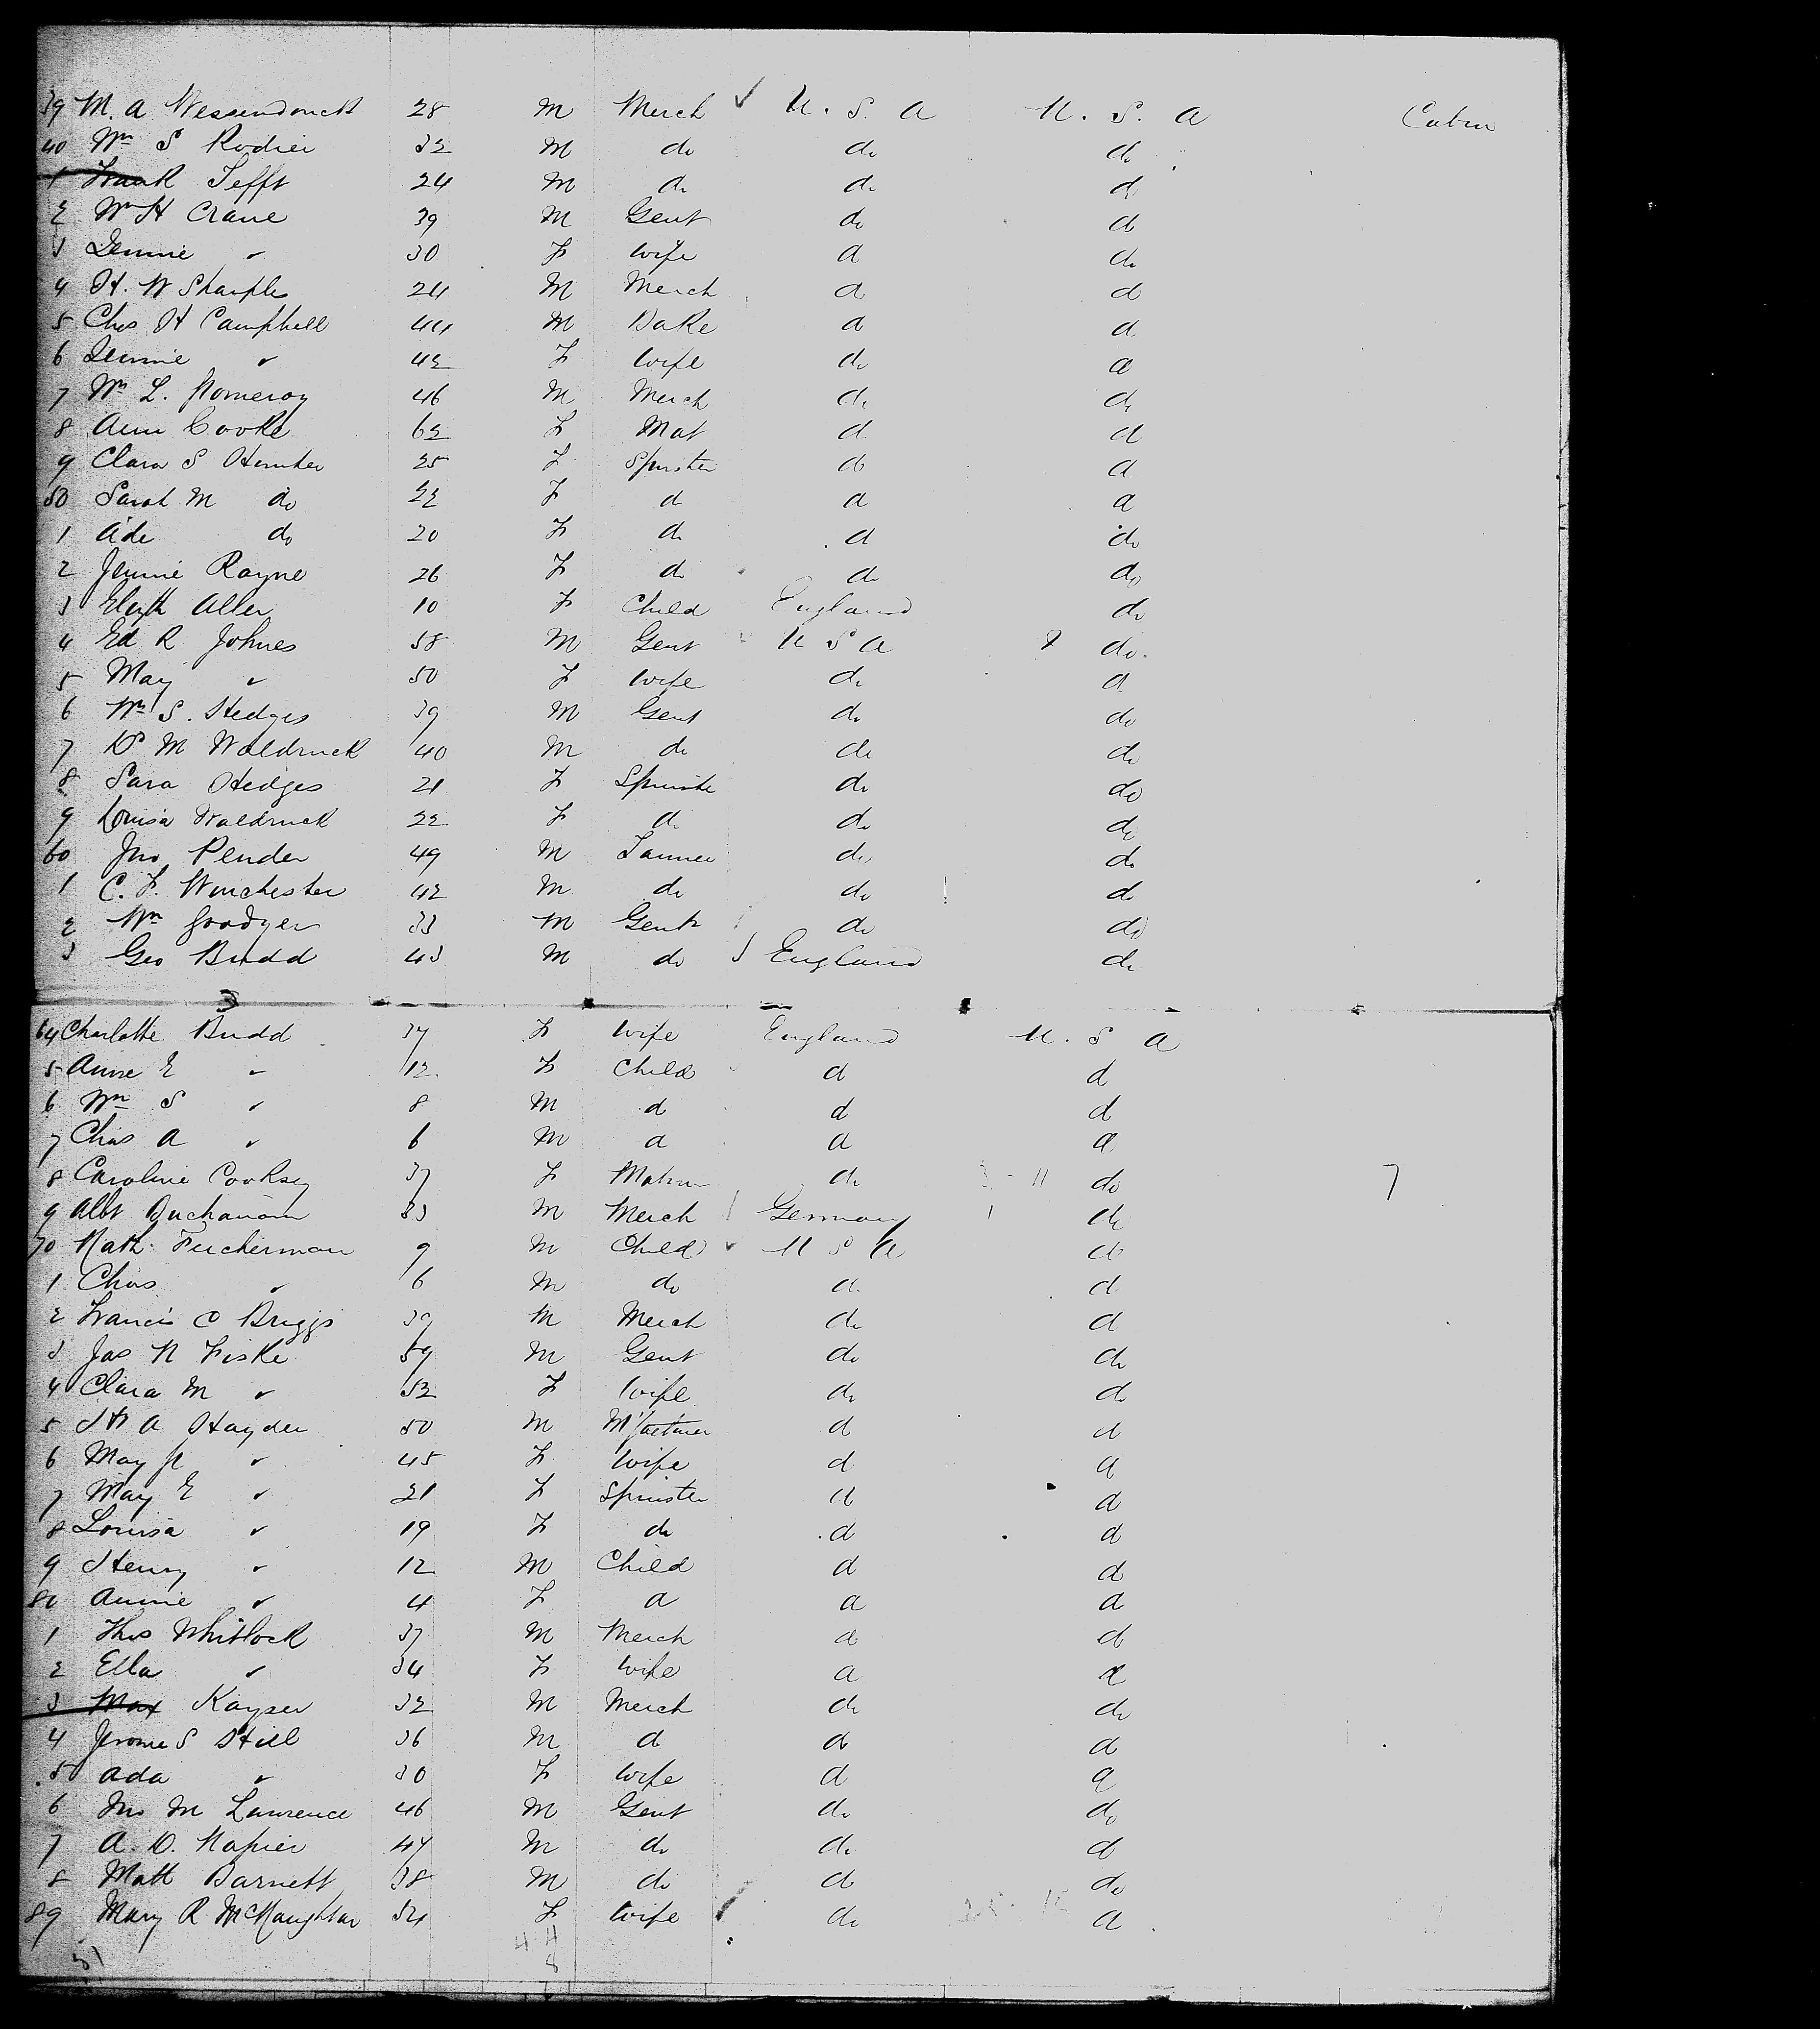 39 M. A Wessendonck 28 M Merch ✓ U. S. A U. S. A Cabin
40 Wm S Rodier 32 M do do do
1 Frank Tefft 24 M do do do
2 Wm H Crane 39 M Gent do do
3 Jennie " 30 F Wife d do
4 H. W Sharples 24 M Merch d d
5 Chas H Campbell 44 M d d
6 Jennie " 42 F Wife do d
7 Wm L. Pomeroy 46 M Merch do do
8 Ann Cooke 62 F Mat d d
9 Clara S Hunter 25 F Spinster do d
50 Sarah M do 22 F d d d
1 Ada do 20 F do d do
2 Jennie Rayne 26 F do do do
3 Elizth Aller 10 F Child England do
4 Ed R Johnes 58 M Gent U S A do
5 May " 50 F Wife do d
6 Wm S. Hedges 39 M Gent do do
7 M Waldruck 40 M do do do
8 Sara Hedges 21 F Spinste do do
9 Louisa Waldruck 22 F do do do
60 Jno Pender 49 M Tanner do do
1 C. F. Winchester 42 M do do do
2 Wm Goodyer 33 M Gent do do
3 Geo Budd 43 M do England do
64 Charlotte Budd 37 F Wife England U. S A
5 Anne E " 12 F Child d d
6 Wm S " 8 M d d d
7 Chas A " 6 M d d d
8 Caroline Cooksey 37 F Matron do do 7
9 Albt Buchanan 33 M Merch Germany do
70 Nath Feicherman 9 M Child U S A do
1 Chas " 6 M do d d
2 Francis O Briggs 39 M Merch do d
3 Jas N Fiske 59 M Gent do do
4 Clara M " 52 F Wife do do
5 A Hayden 50 M M'facturer d d
6 May " 45 F Wife d d
7 May E " 21 F Spinster d d
8 Louisa " 19 F do d d
9 Henry " 12 M Child d d
80 Annie " 4 F d d d
1 Thos Whitlock 37 M Merch do d
2 Ella " 34 F Wife d d
3 Max Kayser 32 M Merch do do
4 Jerome S Hill 36 M d do d
5 Ada " 30 F Wife d d
6 Jno M Lawrence 46 M Gent do do
7 A. D. Napier 47 M do do do
8 Matt Barnett 38 M do do do
89 Mary R McNaughton 34 F Wife do d
51 4 4
8